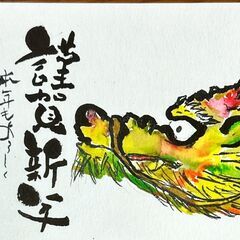 謹賀新年
本年もよろしく